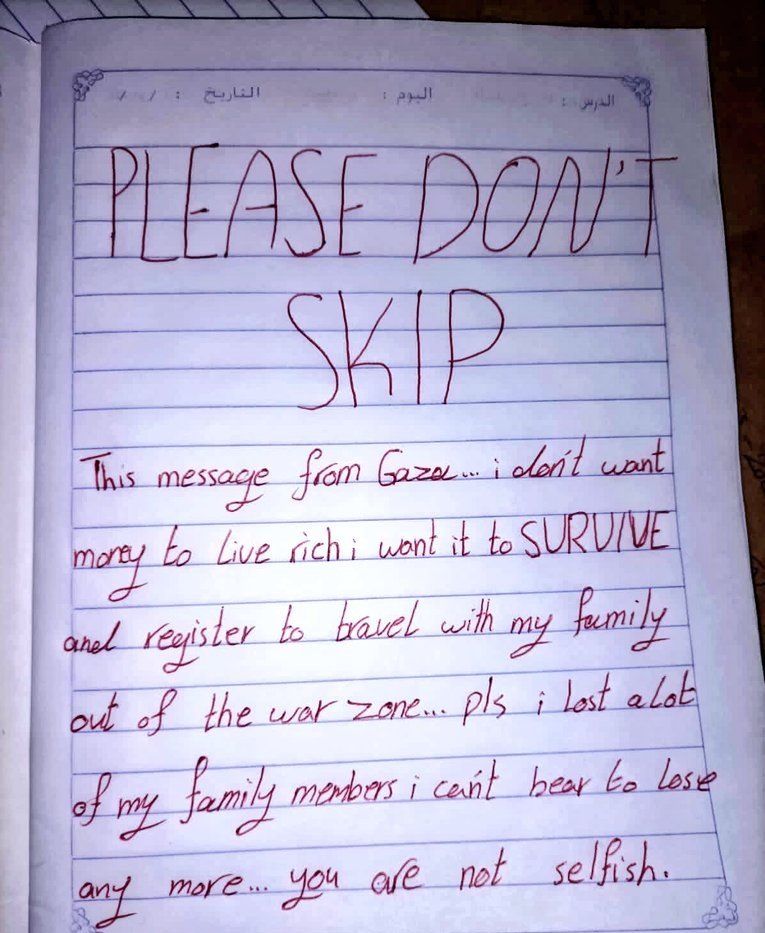 الدرس : اليوم : التاريخ : / /
PLEASE DON'T
SKIP
This message from Gaza... i don't want
money to live rich i want it to SURVIVE
and register to travel with my family
out of the war zone... pls i lost a lot
of my family members i can't bear to lose
any more... you are not selfish.